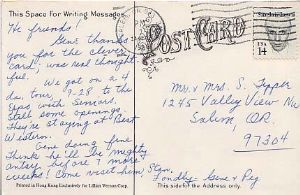 This Space For Writing Messages
Hi friends!
Dear thank
you for the clever
card, was real thought-
ful. We got on a 4
da. tour, 9-28 to the
with Seniors,
still some openings.
They're staying at Best
Western.
Gene doing fine
Thinks he'll be
after more
weeks! Come visit him
Fondly - Gene & Peg
Printed in Hong Kong Exclusively for Lillian Vernon Corp.
POST CARD
USA
14
Mr & Mrs S. Tipper
1245 Valley View
Salem, OR.
97304
This side for the Address only.